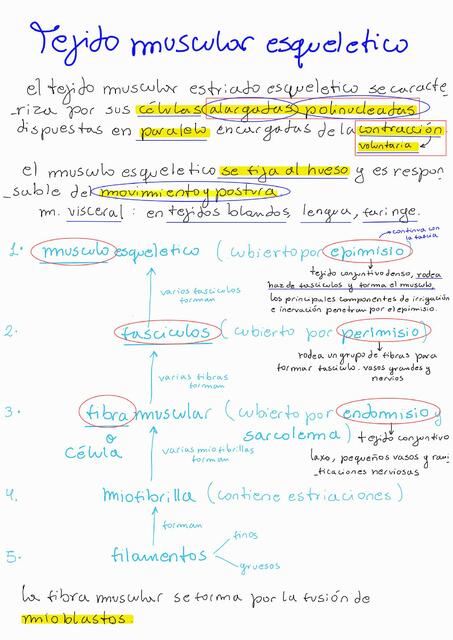 Tejido muscular esqueletico
el tejido muscular estriado esqueletico se caracte
-riza por sus células alargadas polinucleadas
dispuestas en paralelo encargadas de la contracción
voluntaria
el musculo esqueletico se fija al hueso y es respon
-sable del movimiento y postura
m. visceral: en tejidos blandos, lengua, faringe.
continua con
la fascia
1. musculo esqueletico (cubierto por epimisio)
tejido conjuntivo denso, rodea
haz de fasciculos y forma el musculo.
los principales componentes de irrigación
e inervación penetran por el epimisio.
varios fasciculos
forman
2. fasciculos (cubierto por perimisio)
rodea un grupo de fibras para
formar fasciculo. vasos grandes y
nervios
varias fibras
forman
3. fibra muscular (cubierto por endomisio y
o sarcolema)
Célula
tejido conjuntivo
laxo, pequeños vasos y rami
-ficaciones nerviosas
varias miofibrillas
forman
4. miofibrilla (contiene estriaciones)
forman
5. filamentos
finos
gruesos
la fibra muscular se forma por la fusión de
mioblastos.